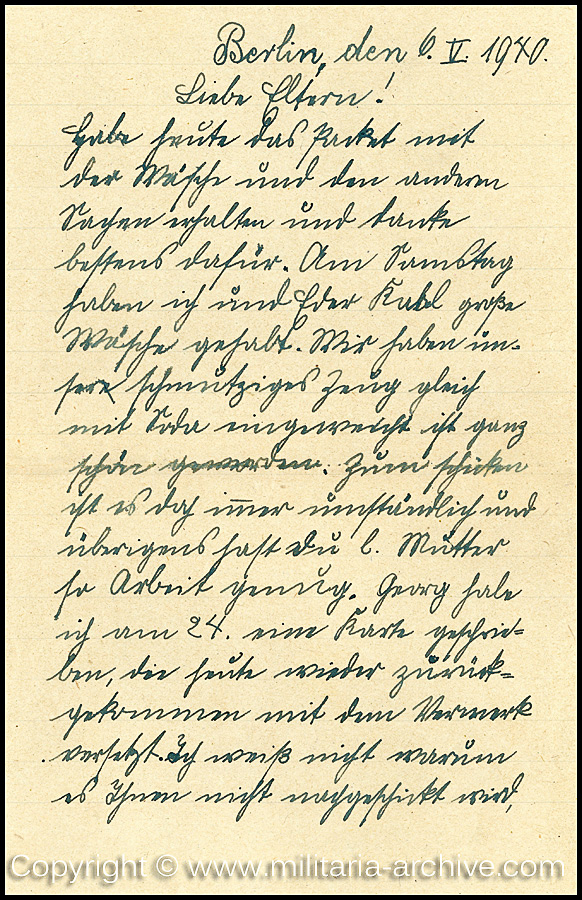 Berlin, den 6. V. 1940.
Liebe Eltern!
Habe heute das Packet mit
der Wäsche und den anderen
Sachen erhalten und danke
bestens dafür. Am Samstag
haben ich und Eder Karl große
Wäsche gehabt. Wir haben un-
sere schmutziges Zeug gleich
mit Soda eingeweicht ist ganz
schön geworden. Zum schicken
ist es doch immer umständlich und
überigens hast du l. Mutter
so Arbeit genug. Georg habe
ich am 24. eine Karte geschrie-
ben, die heute wieder zurück-
gekommen mit dem Vermerk
versetzt. Ich weiß nicht warum
es Ihnen nicht nachgeschickt wird,
Copyright © www.militaria-archive.com